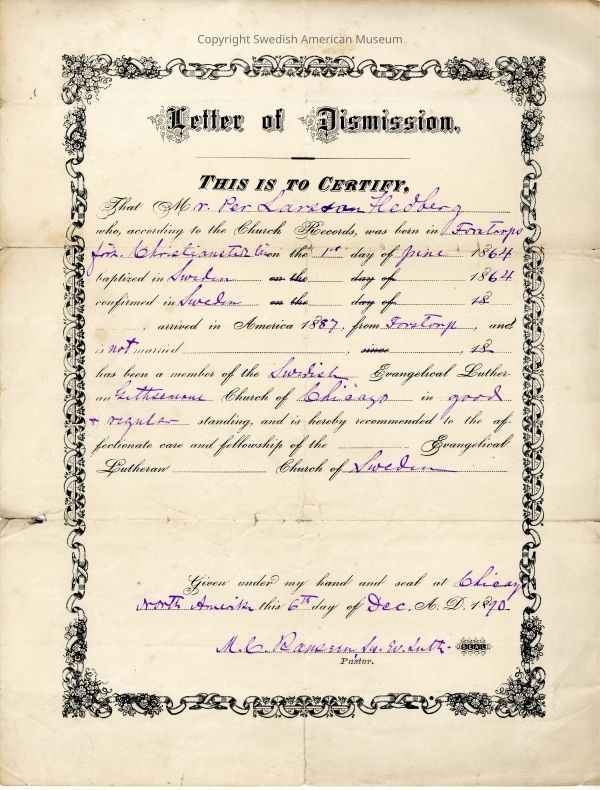 Copyright Swedish American Museum
Letter of Dismission.
THIS IS TO CERTIFY,
That Mr. Per Larsson Hedberg
who, according to the Church Records, was born in Forstorps
förs. Christianstads on the 1st day of June 1864
baptized in Sweden on the day of 1864
confirmed in Sweden on the day of 18
arrived in America 1887, from Forstorp, and
is not married, since, 18
has been a member of the Swedish Evangelical Luther-
an Gethsemane Church of Chicago in good
+ regular standing, and is hereby recommended to the af-
fectionate care and fellowship of the Evangelical
Lutheran Church of Sweden
Given under my hand and seal at Chicago
North Amerika this 6th day of Dec. A. D. 1890.
M. C. Ranseen, Sw. Ev. Luth. SEAL
Pastor.